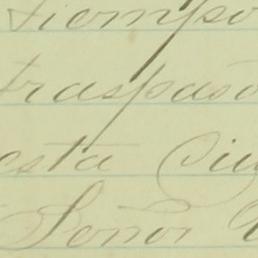 tiempo
traspaso
esta Ciu
Señor